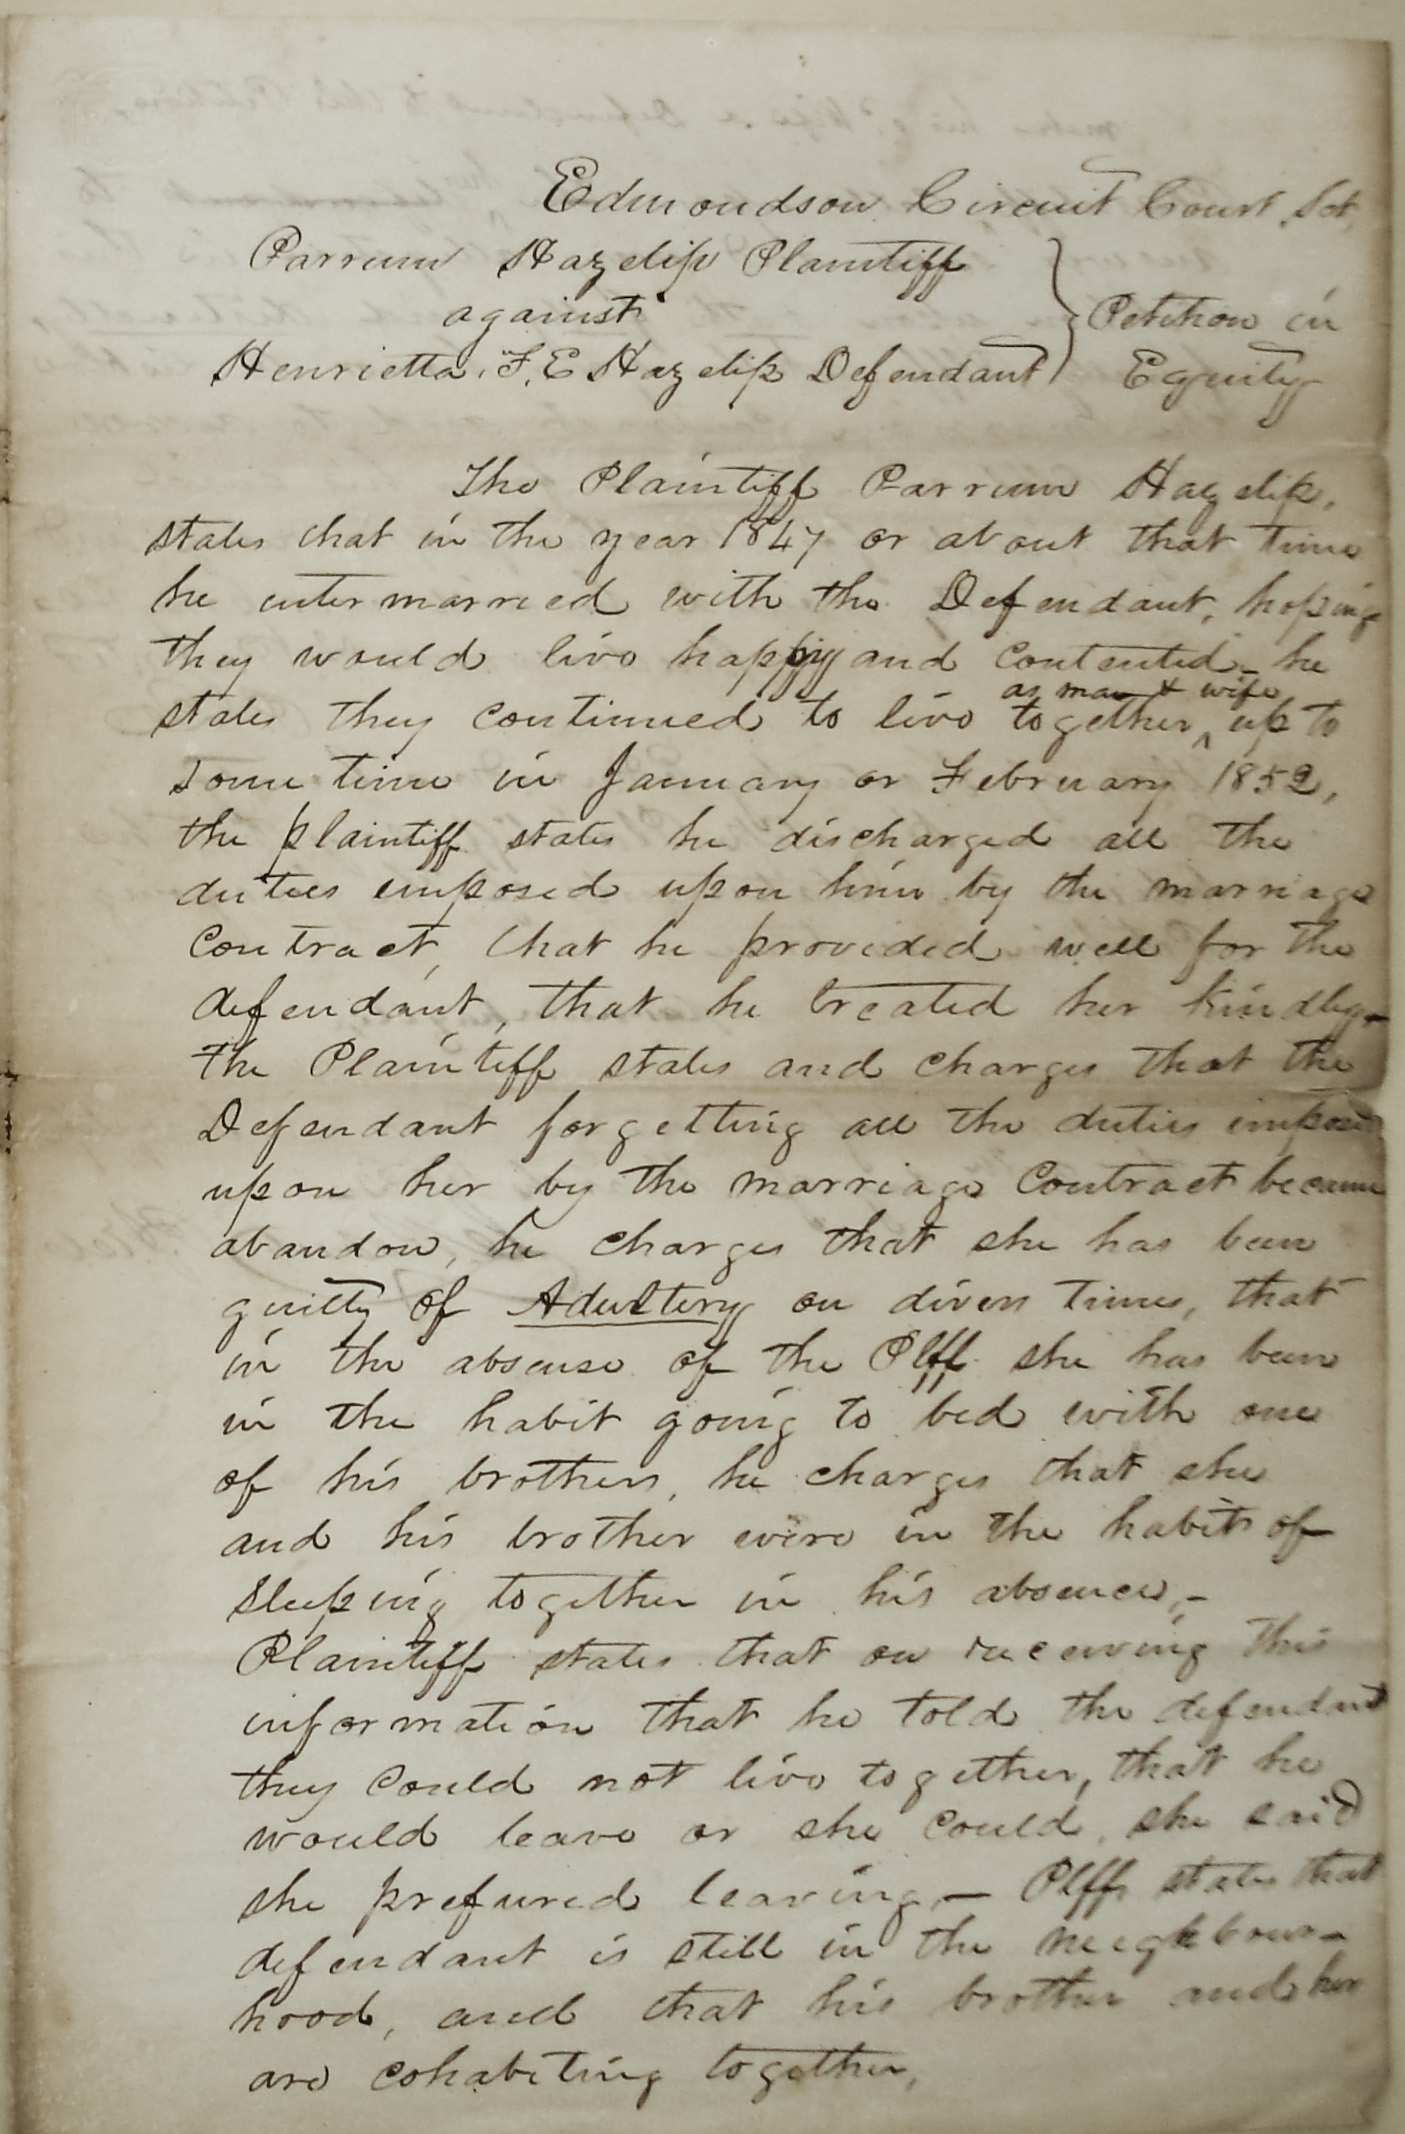 Edmondson Circuit Court Sct,
Parrum Hazelip Plaintiff
against
Henrietta. F. E Hazelip Defendant
Petition in
Equity
The Plaintiff Parrum Hazelip,
states that in the year 1847 or about that time
he intermarried with the Defendant, hoping
they would live happy and contented - he
as man & wife
states they continued to live together ^ up to
some time in January or February 1852,
the plaintiff states he discharged all the
duties imposed upon him by the marriage
contract, that he provided well for the
defendant, that he treated her kindly -
The Plaintiff states and charges that the
Defendant forgetting all the duties imposed
upon her by the marriage Contract became
abandon, he charges that she has been
guilty of Adultery on divers times, that
in the absense of the Plff she has been
in the habit going to bed with one
of his brothers, he charges that she
and his brother were in the habit of
sleeping together in his absence, -
Plaintiff states that on receiving this
information that he told the defendant
they could not live together, that he
would leave or she could, she said
she prefured leaving - Plff states that
defendant is still in the neighbour-
hood, and that his brother and her
are cohabiting together,